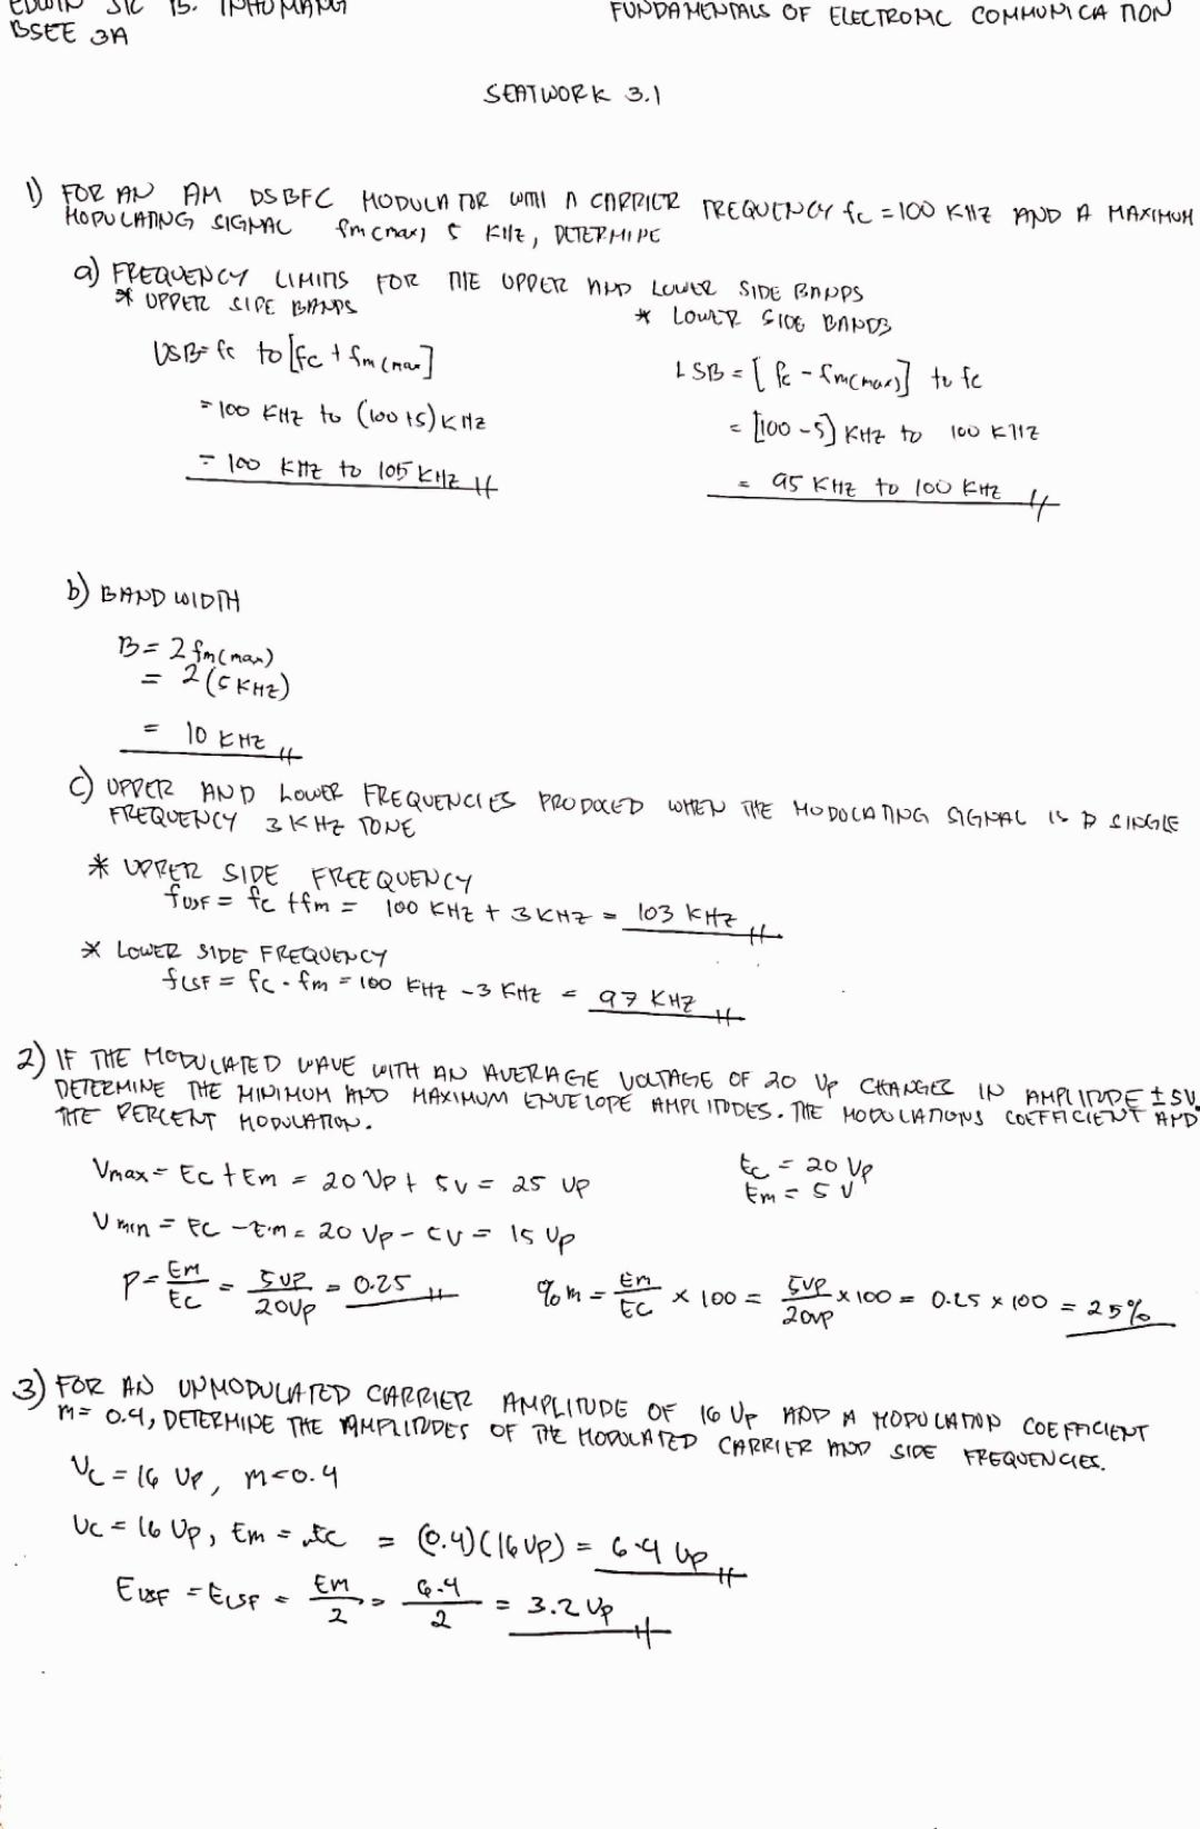 EDWIN JIC B. INHUMANG FUNDAMENTALS OF ELECTRONIC COMMUNICATION
BSEE 3A
SEATWORK 3.1
1) FOR AN AM DSBFC MODULATOR WITH A CARRIER FREQUENCY fc = 100 KHZ AND A MAXIMUM
MODULATING SIGNAL fm(max) 5 KHZ, DETERMINE
a) FREQUENCY LIMITS FOR THE UPPER AND LOWER SIDE BANDS
* UPPER SIDE BANDS
* LOWER SIDE BANDS
USB = fc to [fc + fm(max]
LSB = [fc - fm(max)] to fc
= 100 KHZ to (100+5) KHZ
= [100-5] KHZ to 100 KHZ
= 100 KHZ to 105 KHZ
= 95 KHZ to 100 KHZ
b) BAND WIDTH
B = 2 fm(max)
= 2 (5 KHZ)
= 10 KHZ
c) UPPER AND LOWER FREQUENCIES PRODUCED WHEN THE MODULATING SIGNAL IS A SINGLE
FREQUENCY 3 KHZ TONE
* UPPER SIDE FREEQUENCY
fUSF = fc + fm = 100 KHZ + 3 KHZ = 103 KHZ
* LOWER SIDE FREQUENCY
fLSF = fc - fm = 100 KHZ - 3 KHZ = 97 KHZ
2) IF THE MODULATED WAVE WITH AN AVERAGE VOLTAGE OF 20 Vp CHANGES IN AMPLITUDE ± 5V.
DETERMINE THE MINIMUM AND MAXIMUM ENVELOPE AMPLITUDES. THE MODULATIONS COEFFICIENT AND
THE PERCENT MODULATION.
Vmax = Ec + Em = 20 Vp + 5V = 25 Vp
Ec = 20 Vp
Em = 5 V
Vmin = Ec - Em = 20 Vp - 5V = 15 Vp
P = Em/Ec = 5Vp/20Vp = 0.25
%m = Em/Ec x 100 = 5Vp/20Vp x 100 = 0.25 x 100 = 25%
3) FOR AN UNMODULATED CARRIER AMPLITUDE OF 16 Vp AND A MODULATION COEFFICIENT
m = 0.4, DETERMINE THE AMPLITUDES OF THE MODULATED CARRIER AND SIDE FREQUENCIES.
Vc = 16 Vp, m = 0.4
Vc = 16 Vp, Em = Ec = (0.4)(16 Vp) = 6.4 Vp
EUSF = ELSF = Em/2 = 6.4/2 = 3.2 Vp